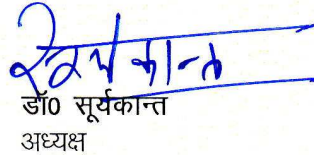 सूर्यकान्त
डॉ0 सूर्यकान्त
अध्यक्ष